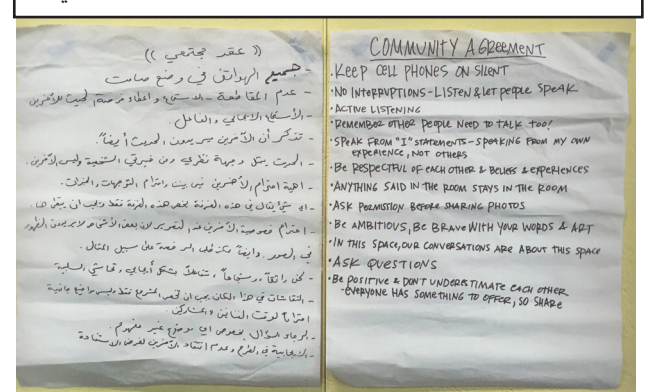 (( عقد مجتمعي ))
- جميع الهواتف في وضع صامت
- عدم المقاطعة - الاستماع و اعطاء فرصة الحديث للآخرين
- الاستماع الايجابي والفاعل.
- تذكر أن الآخرين يريدون الحديث أيضاً.
- الحديث يمثل وجهة نظري ومن خبرتي الشخصية وليس الآخرين.
- اهمية احترام الآخرين
- اي شيء يقال في هذه الغرفة يخص هذه الغرفة فقط ويجب ان يبقى هنا.
- احترام خصوصية الآخرين عند التصوير لان بعض الأشخاص لا يريدون الظهور
في الصور.
- كن
- النقاشات في هذا المكان يجب ان تخص المشروع فقط
- الرجاء السؤال بخصوص اي موضوع غير مفهوم.
- الايجابية في الطرح وعدم انتقاد الآخرين لغرض الاستفادة
COMMUNITY AGREEMENT
· KEEP CELL PHONES ON SILENT
· NO INTERRUPTIONS - LISTEN & LET PEOPLE SPEAK
· ACTIVE LISTENING
· REMEMBER OTHER PEOPLE NEED TO TALK TOO!
· SPEAK FROM "I" STATEMENTS - SPEAKING FROM MY OWN
EXPERIENCE, NOT OTHERS
· BE RESPECTFUL OF EACH OTHER & BELIEFS & EXPERIENCES
· ANYTHING SAID IN THE ROOM STAYS IN THE ROOM
· ASK PERMISSION BEFORE SHARING PHOTOS
· BE AMBITIOUS, BE BRAVE WITH YOUR WORDS & ART
· IN THIS SPACE, OUR CONVERSATIONS ARE ABOUT THIS SPACE
· ASK QUESTIONS
· BE POSITIVE & DON'T UNDERESTIMATE EACH OTHER
- EVERYONE HAS SOMETHING TO OFFER, SO SHARE